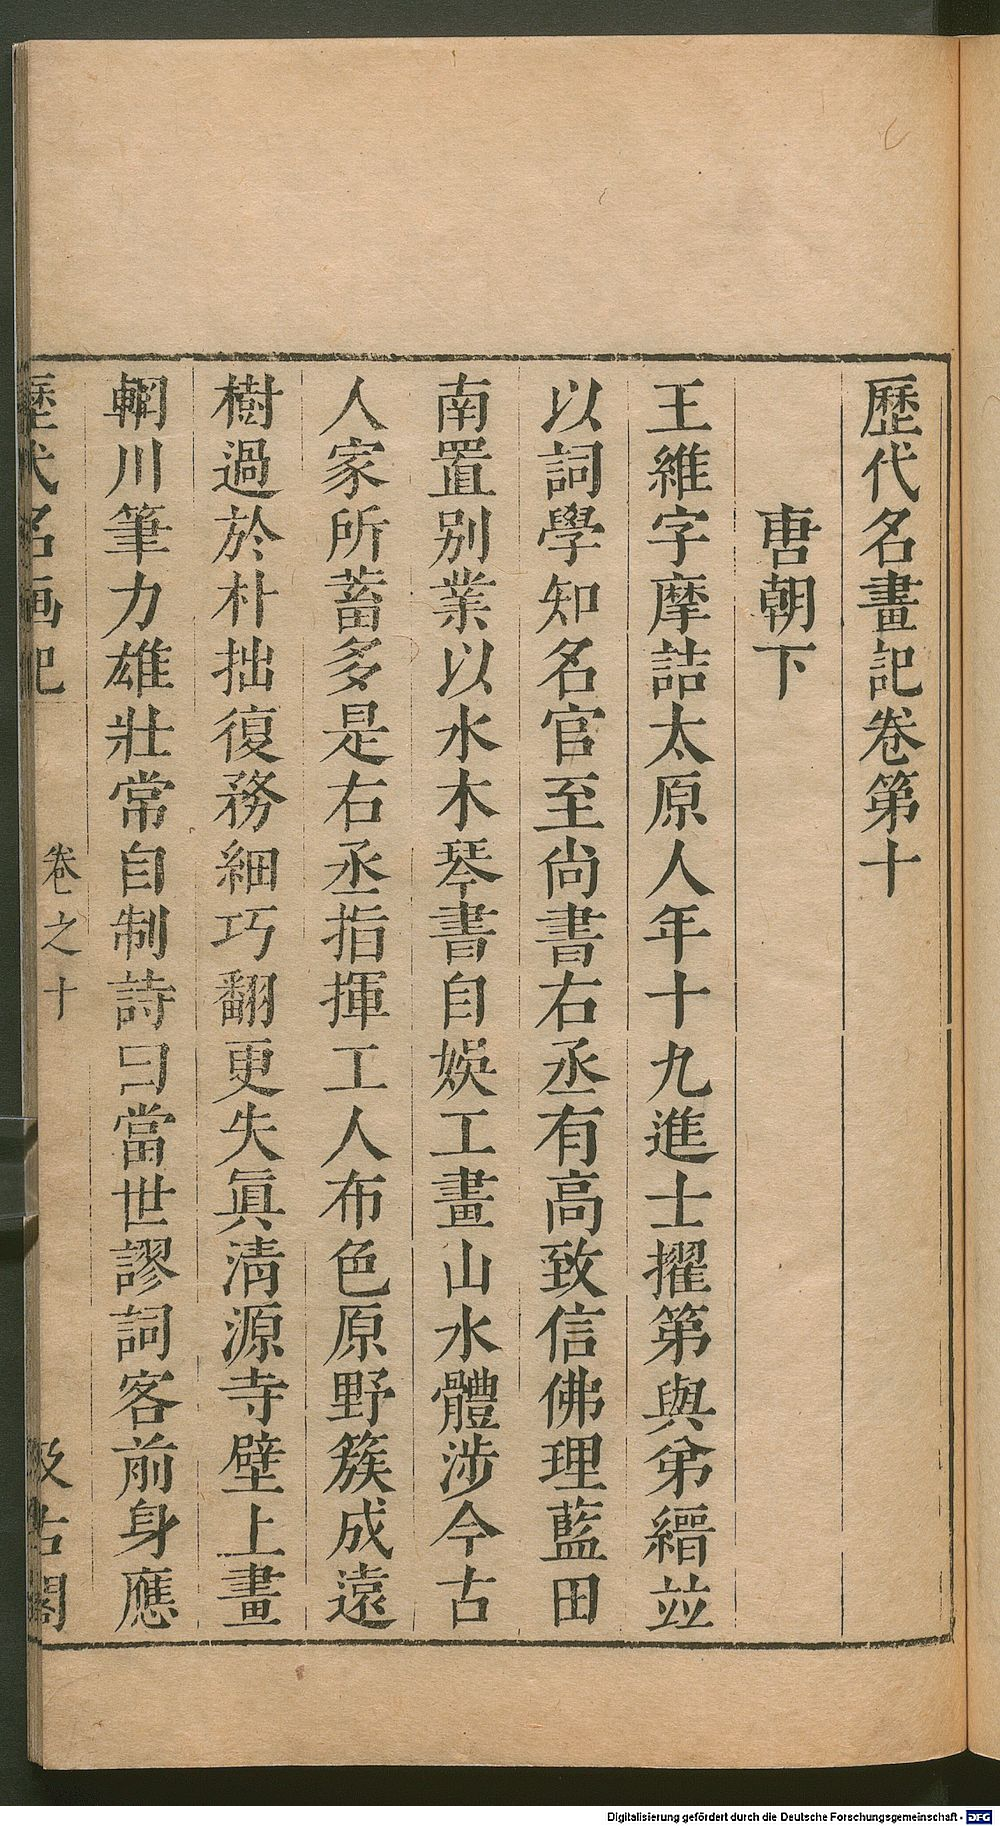 歷代名畫記卷第十
唐朝下
王維字摩詰太原人年十九進士擢第與弟縉並
以詞學知名官至尚書右丞有高致信佛理藍田
南置別業以水木琴書自娛工畫山水體涉今古
人家所蓄多是右丞指揮工人布色原野簇成遠
樹過於朴拙復務細巧翻更失眞清源寺壁上畫
輞川筆力雄壯常自制詩曰當世謬詞客前身應
歷代名画記 卷之十 汲古閣
Digitalisierung gefördert durch die Deutsche Forschungsgemeinschaft - DFG